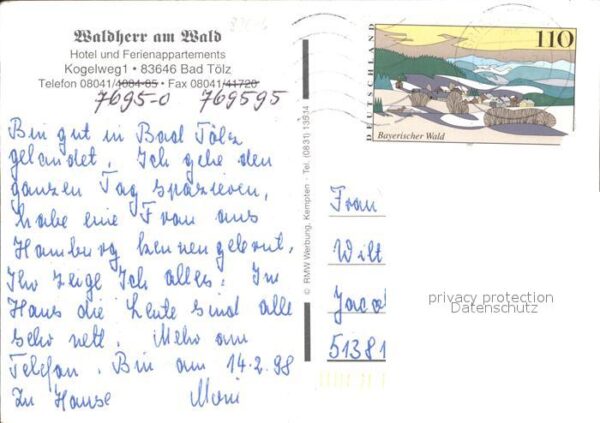 Waldherr am Wald
Hotel und Ferienappartements
Kogelweg1 • 83646 Bad Tölz
Telefon 08041/4084-85 • Fax 08041/41720
7695-0 769595
Bin gut in Bad Tölz
gelandet. Ich gehe den
ganzen Tag spazieren,
habe eine Frau aus
Hamburg kennengelernt,
Ihr zeige Ich alles. Im
Haus die Leute sind alle
sehr nett. Mehr am
Telefon. Bin am 14.2.98
Zu Hause Moni
© RMW Werbung, Kempten · Tel. (0831) 13514
DEUTSCHLAND
110
Bayerischer Wald
Frau
Wilt
Jacob
51381
privacy protection
Datenschutz